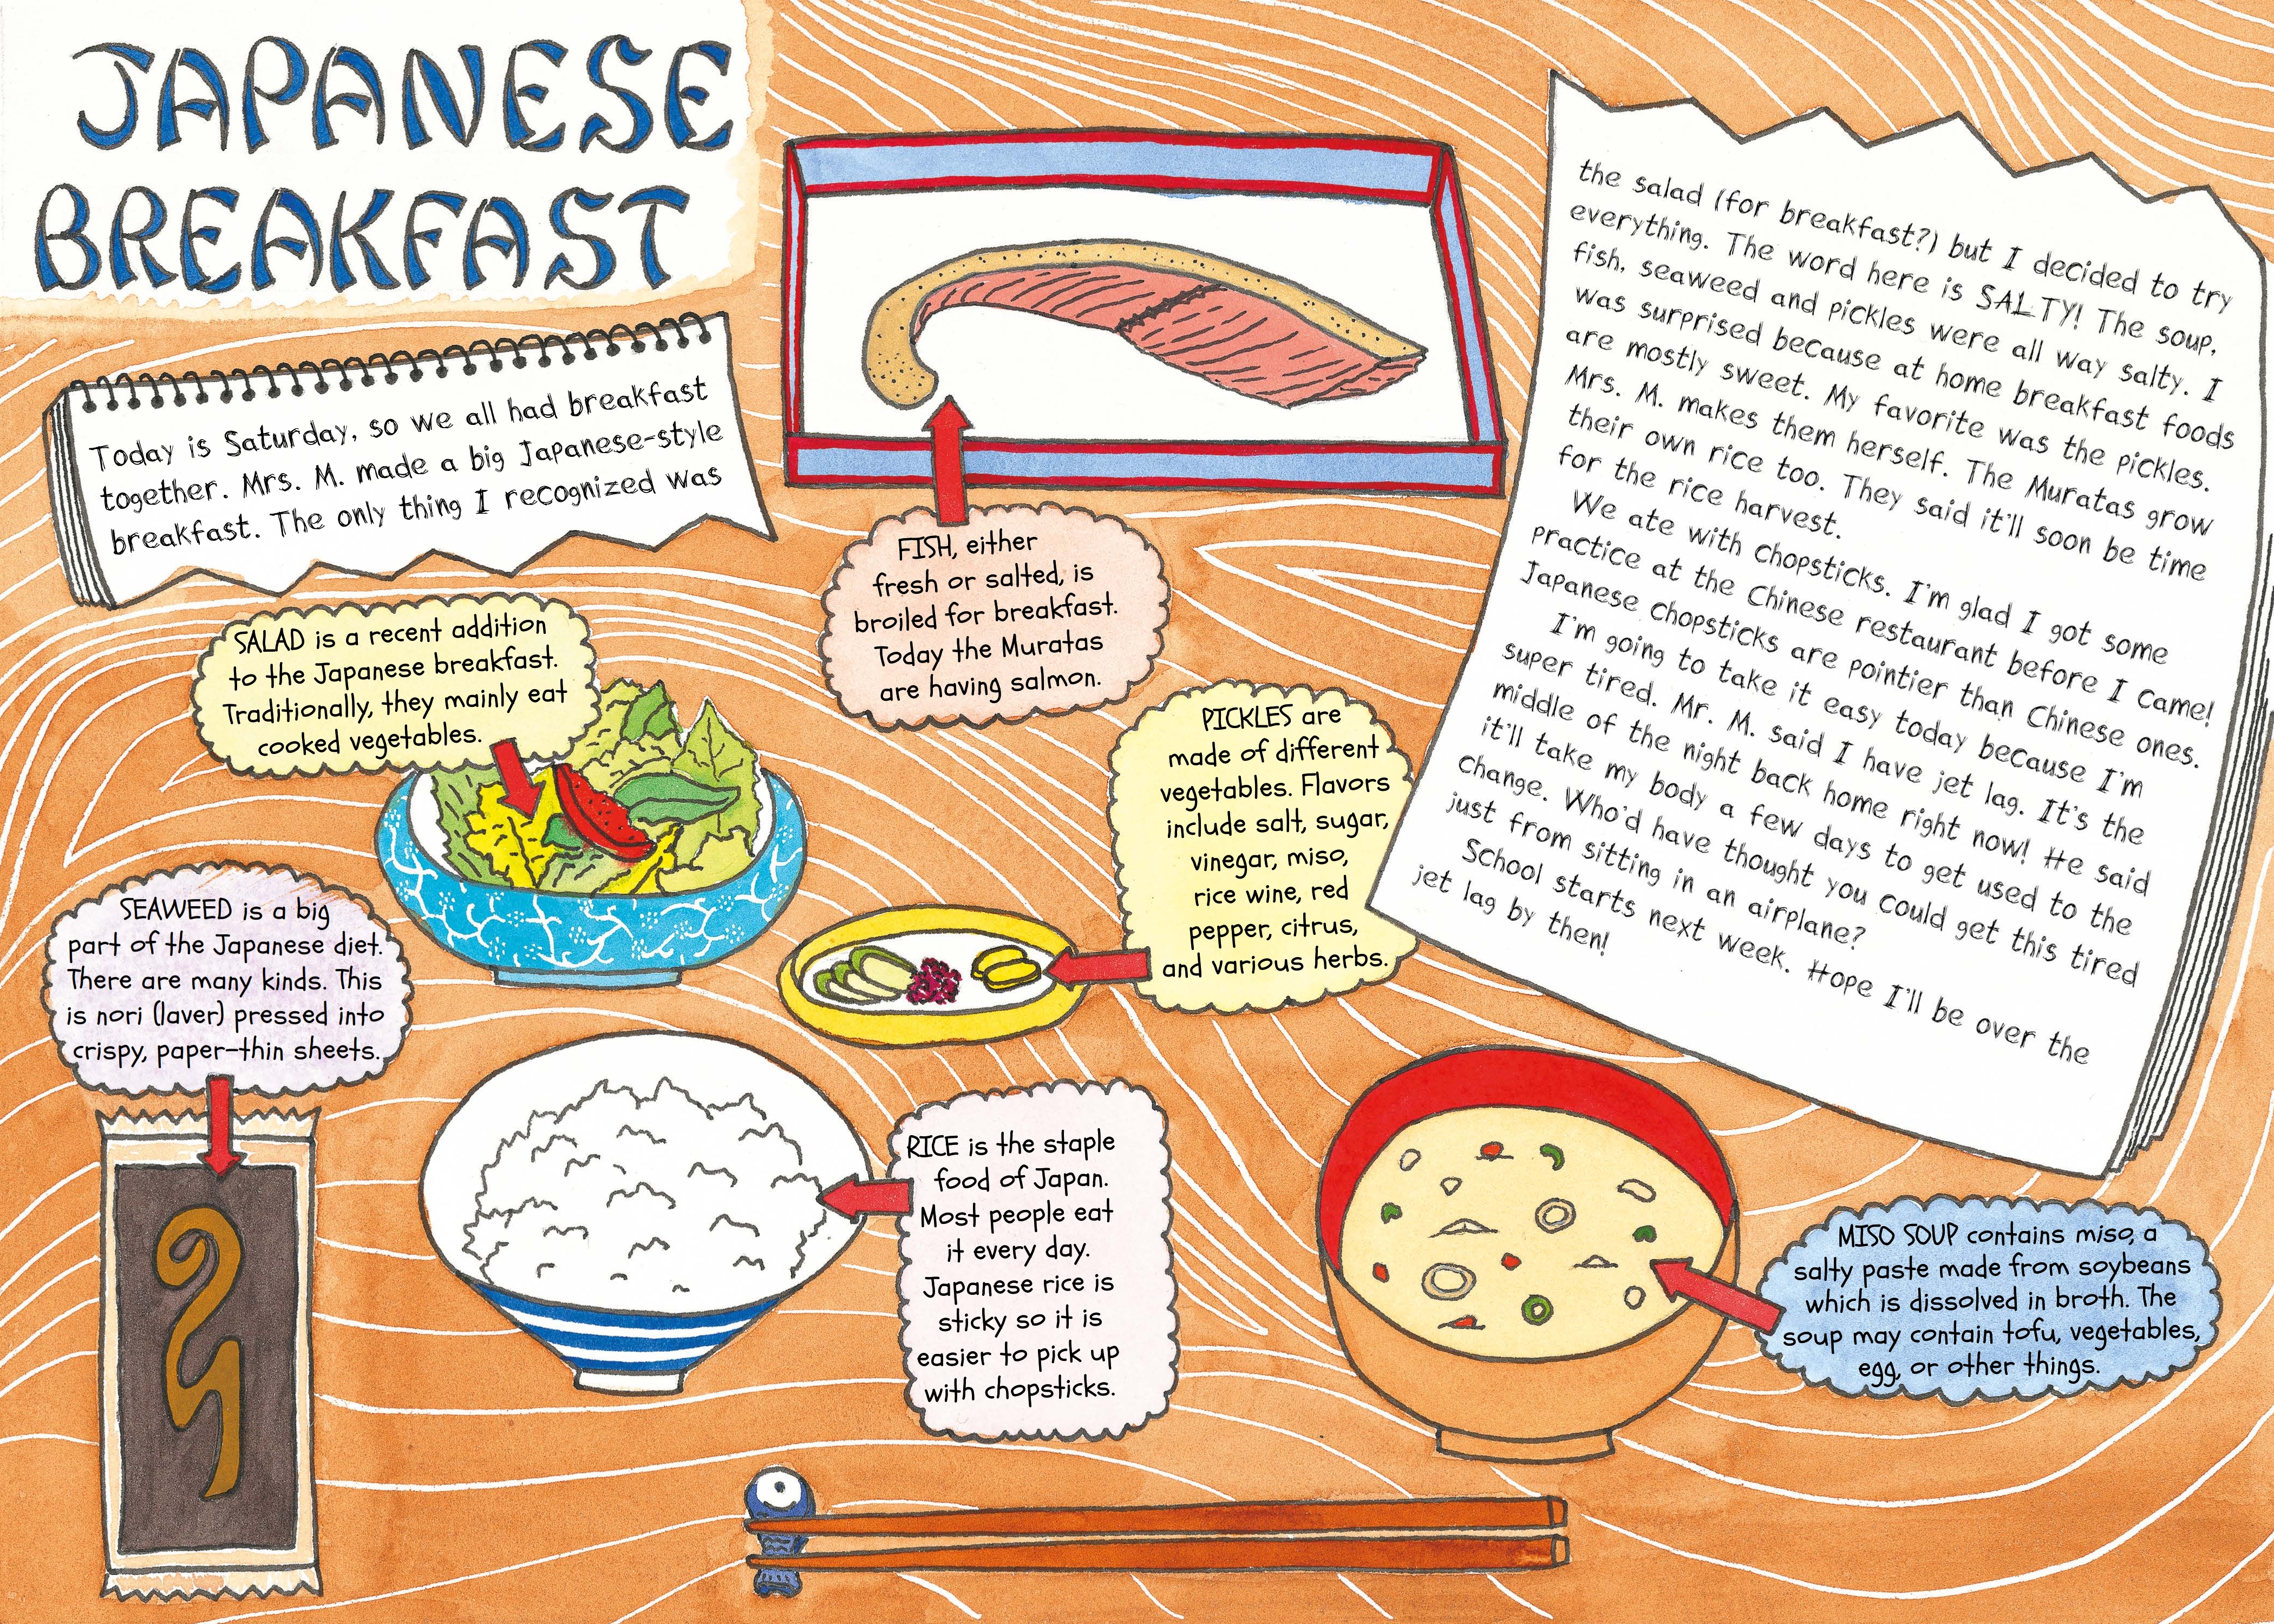 JAPANESE
BREAKFAST
Today is Saturday, so we all had breakfast
together. Mrs. M. made a big Japanese-style
breakfast. The only thing I recognized was
the salad (for breakfast?) but I decided to try
everything. The word here is SALTY! The soup,
fish, seaweed and pickles were all way salty. I
was surprised because at home breakfast foods
are mostly sweet. My favorite was the pickles.
Mrs. M. makes them herself. The Muratas grow
their own rice too. They said it'll soon be time
for the rice harvest.
We ate with chopsticks. I'm glad I got some
practice at the Chinese restaurant before I came!
Japanese chopsticks are pointier than Chinese ones.
I'm going to take it easy today because I'm
super tired. Mr. M. said I have jet lag. It's the
middle of the night back home right now! He said
it'll take my body a few days to get used to the
change. Who'd have thought you could get this tired
just from sitting in an airplane?
School starts next week. Hope I'll be over the
jet lag by then!
FISH, either
fresh or salted, is
broiled for breakfast.
Today the Muratas
are having salmon.
SALAD is a recent addition
to the Japanese breakfast.
Traditionally, they mainly eat
cooked vegetables.
PICKLES are
made of different
vegetables. Flavors
include salt, sugar,
vinegar, miso,
rice wine, red
pepper, citrus,
and various herbs.
SEAWEED is a big
part of the Japanese diet.
There are many kinds. This
is nori (laver) pressed into
crispy, paper-thin sheets.
RICE is the staple
food of Japan.
Most people eat
it every day.
Japanese rice is
sticky so it is
easier to pick up
with chopsticks.
MISO SOUP contains miso, a
salty paste made from soybeans
which is dissolved in broth. The
soup may contain tofu, vegetables,
egg, or other things.